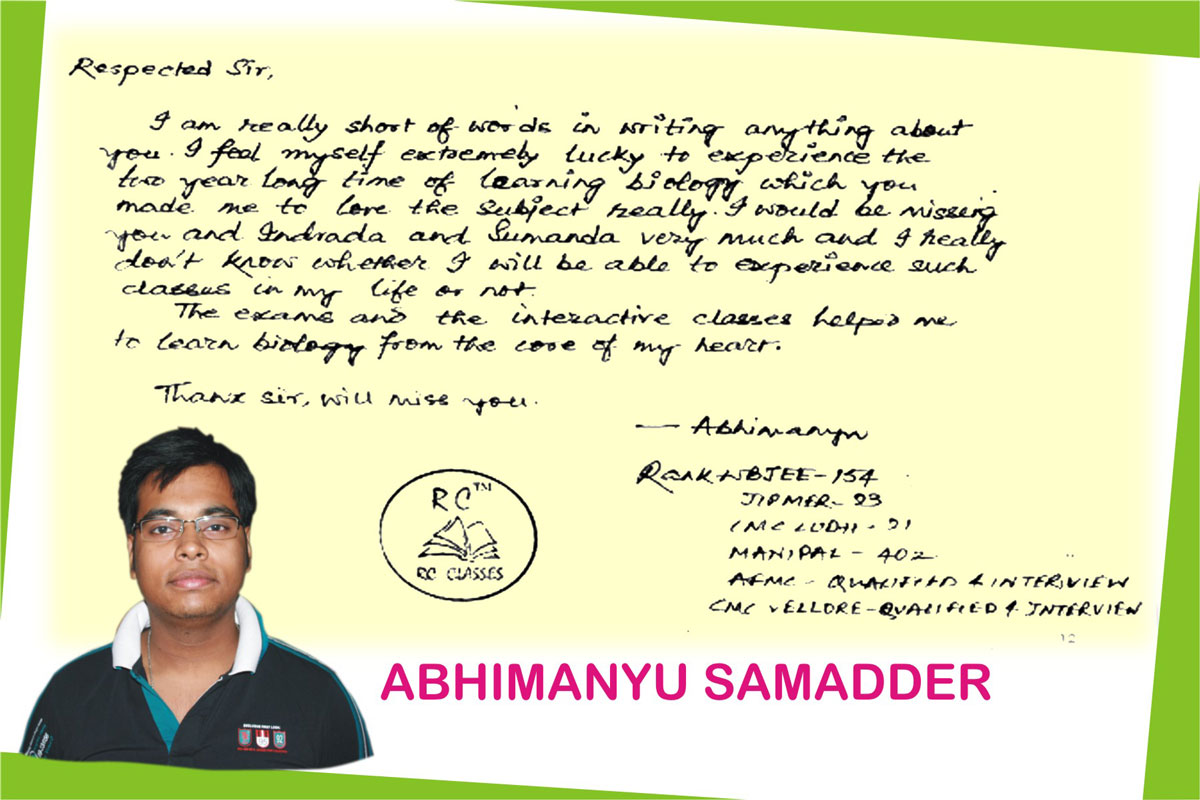 Respected Sir,
I am really short of words in writing anything about
you. I feel myself extremely lucky to experience the
two year long time of learning biology which you
made me to love the subject really. I would be missing
you and Indrada and Sumanda very much and I really
don't know whether I will be able to experience such
classes in my life or not.
The exams and the interactive classes helped me
to learn biology from the core of my heart.
Thanx sir, will miss you.
— Abhimanyu
Rank WBJEE-154
JIPMER-23
CMC LUDH - 21
MANIPAL - 402
AFMC - QUALIFIED & INTERVIEW
CMC VELLORE-QUALIFIED & INTERVIEW
RC™
RC CLASSES
12
ABHIMANYU SAMADDER